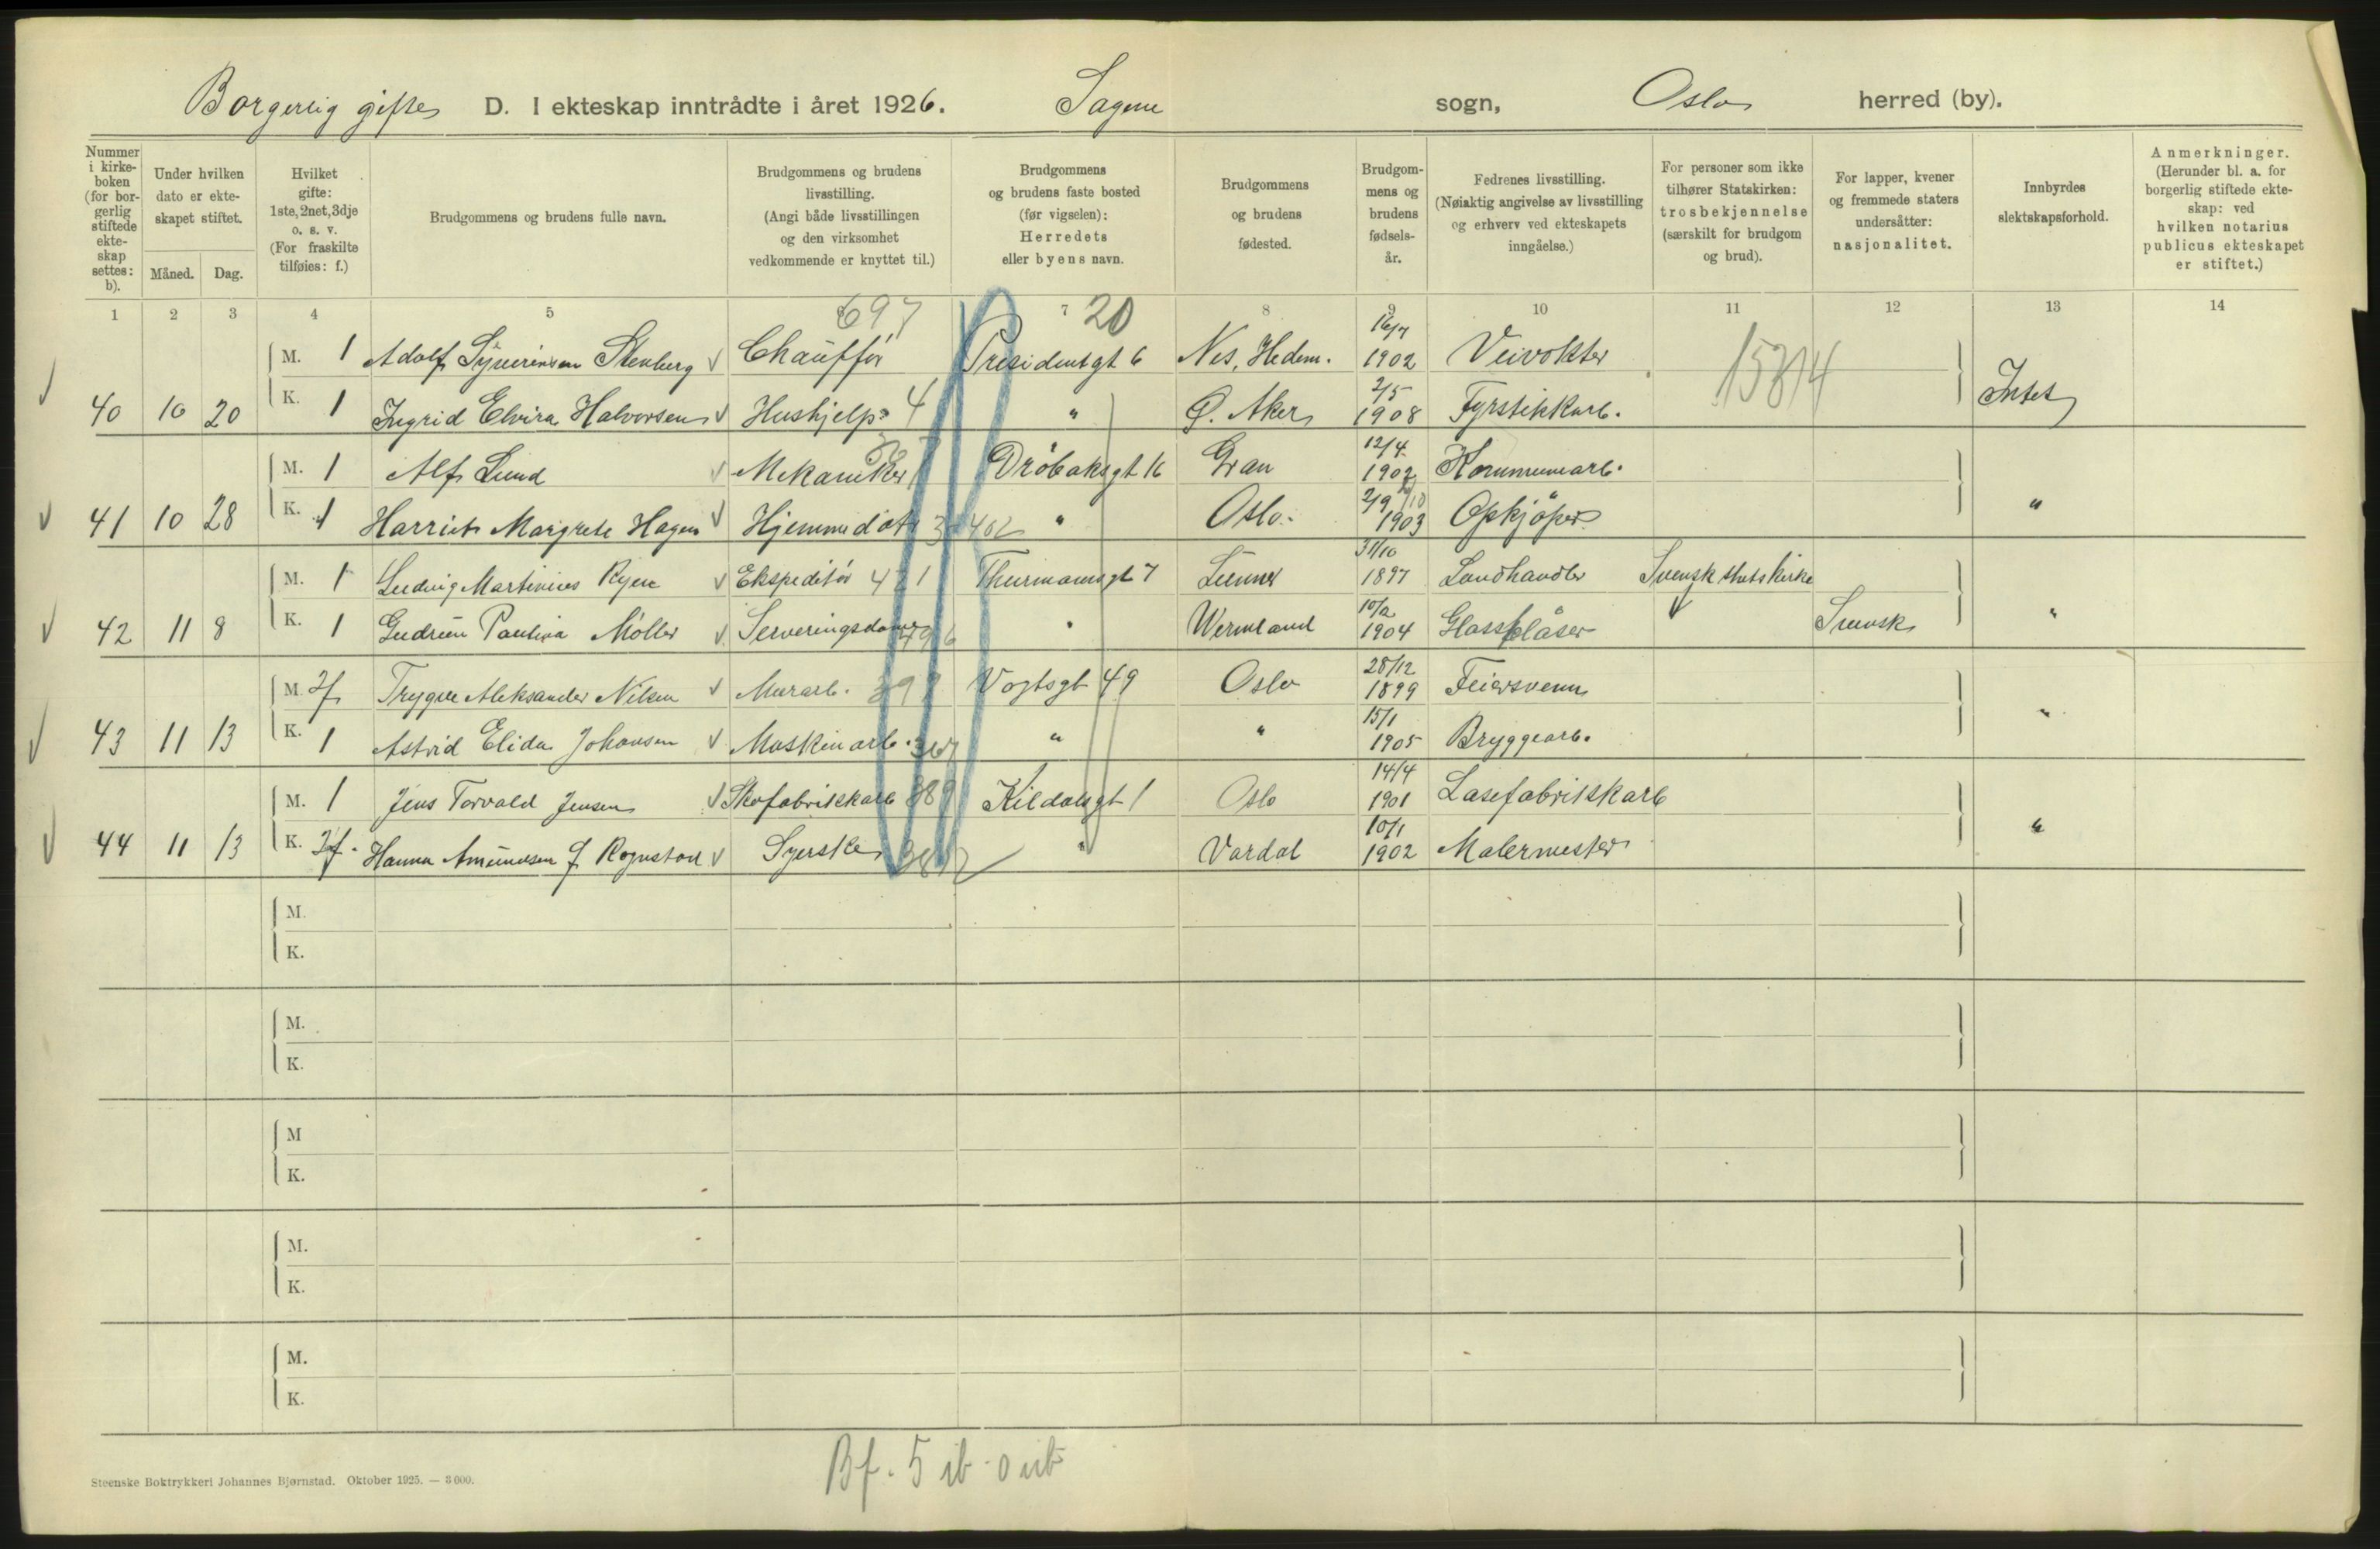 Borgerlig gifte D. I ekteskap inntrådte i året 1926. Sagene sogn, Oslo herred (by).
Nummer i kirkeboken (for borgerlig stiftede ekteskap settes: b).
Under hvilken dato er ekteskapet stiftet.
Måned. Dag.
Hvilket gifte: 1ste, 2net, 3dje o. s. v. (For fraskilte tilføies: f.)
Brudgommens og brudens fulle navn.
Brudgommens og brudens livsstilling. (Angi både livsstillingen og den virksomhet vedkommende er knyttet til.)
Brudgommens og brudens faste bosted (før vigselen): Herredets eller byens navn.
Brudgommens og brudens fødested.
Brudgommens og brudens fødselsår.
Fedrenes livsstilling. (Nøiaktig angivelse av livsstilling og erhverv ved ekteskapets inngåelse.)
For personer som ikke tilhører Statskirken: trosbekjennelse (særskilt for brudgom og brud).
For lapper, kvener og fremmede staters undersåtter: nasjonalitet.
Innbyrdes slektskapsforhold.
Anmerkninger. (Herunder bl. a. for borgerlig stiftede ekteskap: ved hvilken notarius publicus ekteskapet er stiftet.)
1 2 3 4 5 6 7 8 9 10 11 12 13 14
697 20
M. 1 Adolf Syverinsen Stenberg Chauffør Presidentgt 6 Nes, Hedem. 16/7 1902 Veivokter
40 10 20 K. 1 Ingrid Elvira Halvorsen Hushjelp 4 " Ø. Aker 2/5 1908 Fyrstikkarb. 15814 Intet
M. 1 Alf Lund Mekaniker Drøbaksgt 16 Gran 12/4 1902 Kommunearb.
41 10 28 K. 1 Harriet Margrete Hagen Hjemmedatt " Oslo 2/9 1903 Opkjøper "
M. 1 Ludvig Martinius Ryen Ekspeditør 421 Thurmannsgt 7 Lunner 31/10 1897 Landhandler Svensk statskirke
42 11 8 K. 1 Gudrun Paulina Møller Serveringsdame " Wermland 10/2 1904 Glassblåser Svensk "
M. 2f Trygve Aleksander Nilsen Murarb. Vogtsgt 49 Oslo 28/12 1899 Feiersvenn
43 11 13 K. 1 Astrid Elida Johansen Maskinarb. " " 15/1 1905 Bryggearb. "
M. 1 Jens Torvald Jensen Skofabrikkarb Kildalsgt 1 Oslo 14/4 1901 Låsefabrikkarb
44 11 13 K. 2f. Hanna Amundsen f. Rognstad Syerske " Vardal 10/1 1902 Malermester "
M.
K.
M.
K.
M
K.
M.
K.
M.
K.
Bf. 5 ib 0 ub
Steenske Boktrykkeri Johannes Bjørnstad. Oktober 1925. — 3 000.